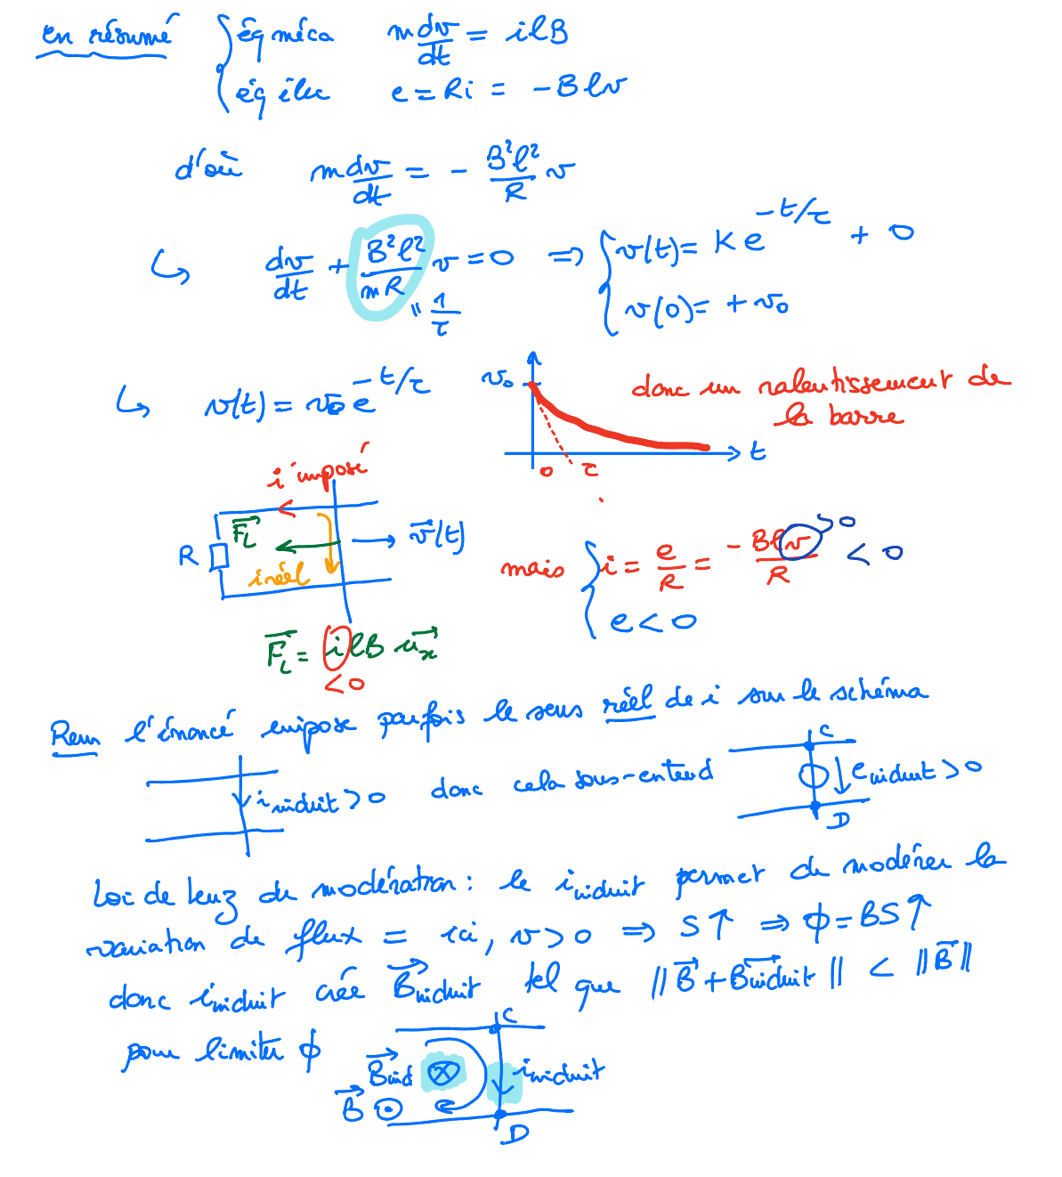 en résumé { éq méca m dv/dt = ilB
éq élec e = Ri = -Blv
d'où m dv/dt = - B²l²/R v
↳ dv/dt + B²l²/mR v = 0 ⇒ { v(t) = K e^(-t/τ) + 0
" 1/τ
v(0) = + v₀
↳ v(t) = v₀ e^(-t/τ)
v₀
donc un ralentissement de
la barre
t
0 τ
i imposé
R F_L→ v→(t)
i réel
mais { i = e/R = -Blv/R < 0
>0
e < 0
F_L→ = ilB u_x→
<0
Rem l'énoncé impose parfois le sens réel de i sur le schéma
i induit > 0 donc cela sous-entend
C
e induit > 0
D
Loi de Lenz de modération : le i induit permet de modérer la
variation de flux = ici, v > 0 ⇒ S↑ ⇒ ϕ = BS↑
donc i induit crée B induit→ tel que ||B→ + B induit→|| < ||B→||
pour limiter ϕ
C
B ind→ ⊗ i induit
B→ ⊙
D